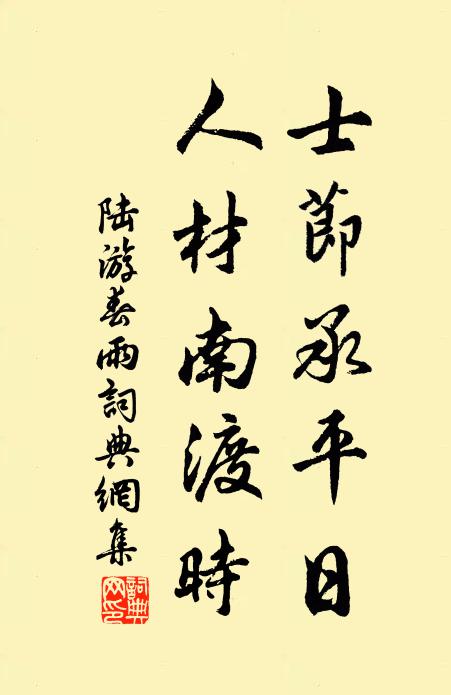 士節承平日
人材南渡時
陸游春雨詞典網集
詞典網印